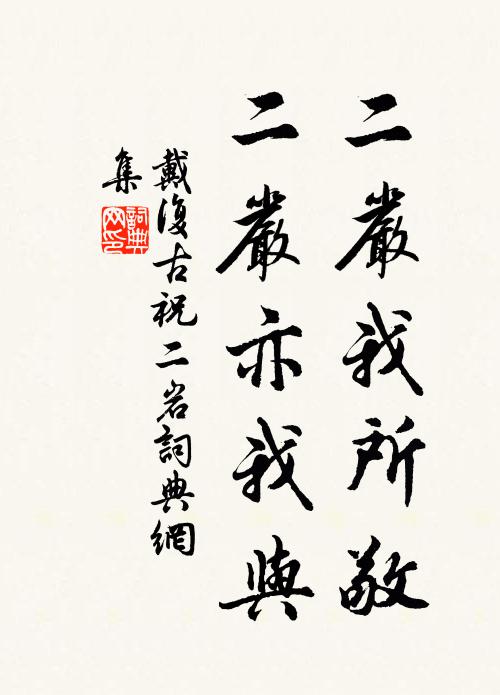 二嚴我所敬
二嚴亦我與
戴復古祝二岩詞典網
集
詞典
网印